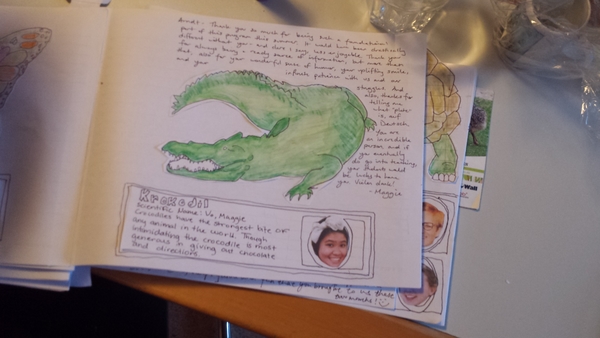 Thank you so much for being such a foundational
part of this program this summer. It would have been drastically
different without you - and dare I say, less enjoyable. Thank you
for always being a ready source of information, but more than
that, also for your wonderful sense of humor, your uplifting smile,
and your
infinite patience with us and our
struggles! And
also, thanks for
telling me
what
is, auf
Deutsch.
You are
an incredible
person, and if
you eventually
do go into teaching,
your students would
be lucky to have
you. Vielen dank!
- Maggie
Krokodil
Scientific Name: Vs. Maggie
Crocodiles have the strongest bite OF
any animal in the world. Though
intimidating the crocodile is most
generous in giving out chocolate
and directions.
that you brought to us these